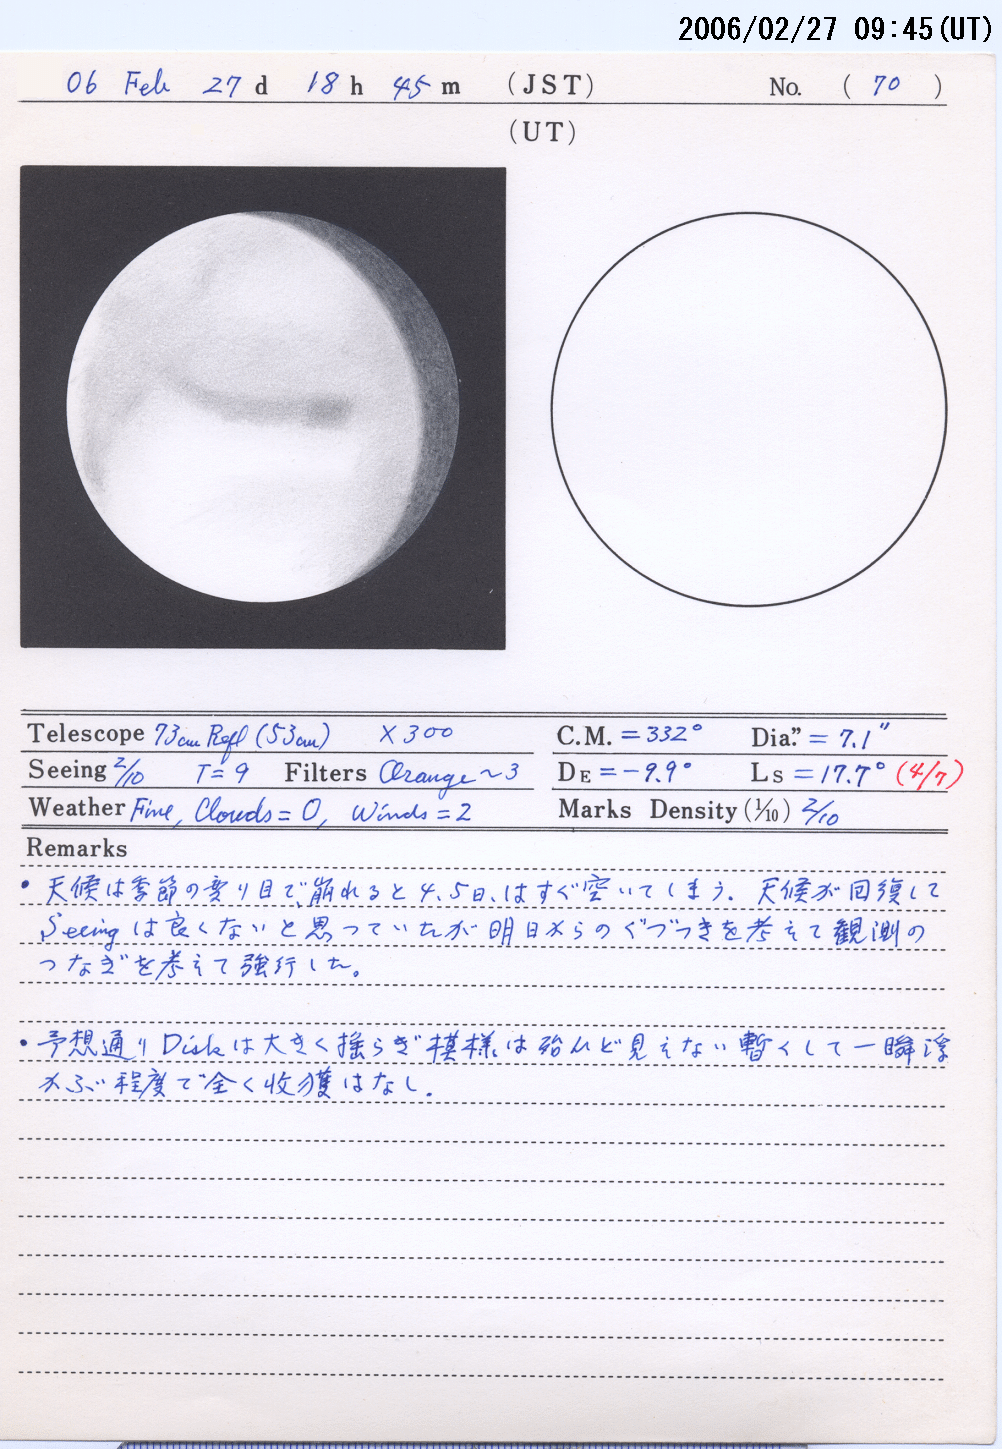 2006/02/27 09:45(UT)
06 Feb 27 d 18 h 45 m (JST) No. ( 70 )
(UT)
Telescope 73cm Refl (53cm) ×300 C.M. = 332° Dia." = 7.1"
Seeing 2/10 T=9 Filters Orange~3 DE = -9.9° LS = 17.7° (4/7)
Weather Fine, Clouds=0, Winds=2 Marks Density (1/10) 2/10
Remarks
・天候は季節の変り目で、崩れると4、5日、はすぐ空いてしまう。天候が回復して
Seeingは良くないと思っていたが明日からのぐづつきを考えて観測の
つなぎを考えて強行した。
・予想通りDiskは大きく揺らぎ模様は殆んど見えない暫くして一瞬浮
かぶ程度で全く収獲はなし.